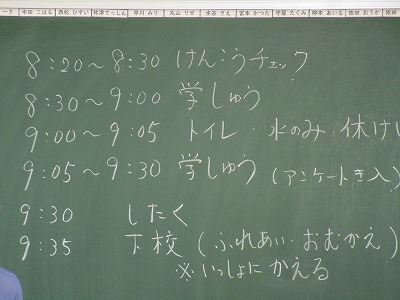 中田 こはる 西松 ひすい 早川 みり 丸山 りせ 水谷 さえ 宮本 かつた 守屋 たくみ 柳本 あいる 依田 おうか 依田
8:20～8:30 けんこうチェック
8:30～9:00 学しゅう
9:00～9:05 トイレ・水のみ・休けい
9:05～9:30 学しゅう (アンケート記入)
9:30 したく
9:35 下校 (ふれあい・おむかえ)
※いっしょに かえる